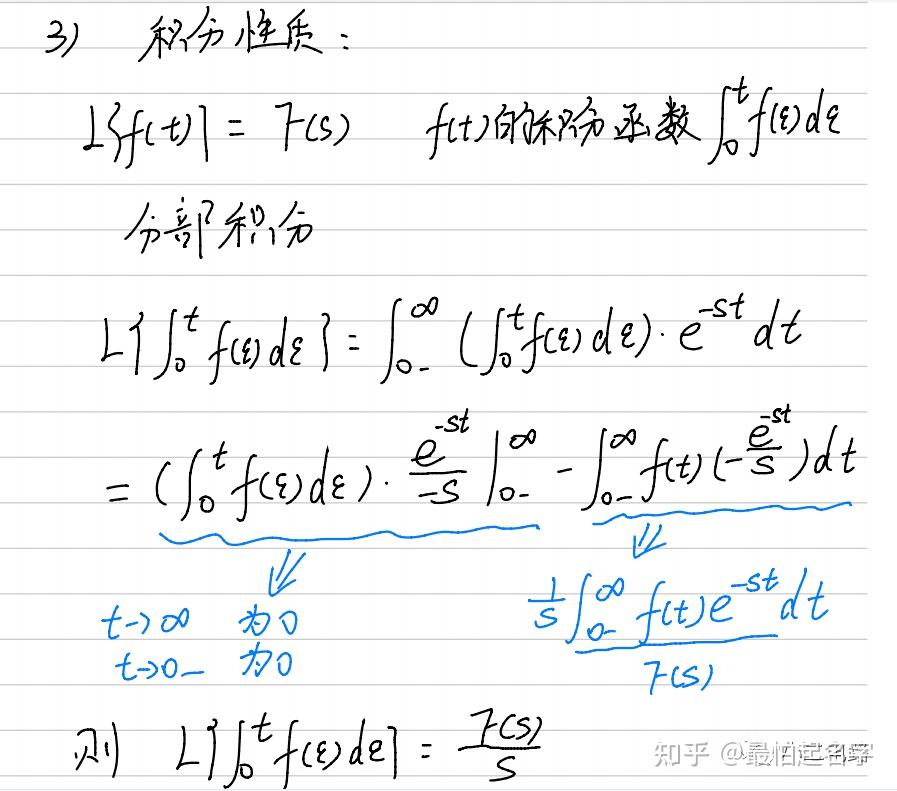 3) 积分性质：
L{f(t)} = F(s) f(t)的积分函数 ∫₀ᵗ f(ξ)dξ
分部积分
L{∫₀ᵗ f(ξ)dξ} = ∫₀₋^∞ (∫₀ᵗ f(ξ)dξ)·e^{-st} dt
= (∫₀ᵗ f(ξ)dξ)·\frac{e^{-st}}{-s}|₀₋^∞ - ∫₀₋^∞ f(t)(-\frac{e^{-st}}{s})dt
t→∞ 为0
t→0₋ 为0
\frac{1}{s}∫₀₋^∞ f(t)e^{-st} dt
F(s)
则 L{∫₀ᵗ f(ξ)dξ} = \frac{F(s)}{s}
知乎 @最怕起名字